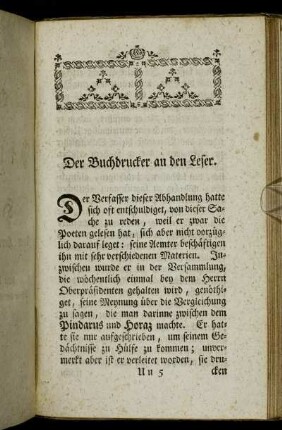 Der Buchdrucker an den Leser.
Der Verfasser dieser Abhandlung hatte
sich oft entschuldiget, von dieser Sa-
che zu reden, weil er zwar die
Poeten gelesen hat, sich aber nicht vorzüg-
lich darauf leget: seine Aemter beschäftigen
ihn mit sehr verschiedenen Materien. In-
zwischen wurde er in der Versammlung,
die wöchentlich einmal bey dem Herrn
Oberpräsidenten gehalten wird, genöthi-
get, seine Meynung über die Vergleichung
zu sagen, die man darinne zwischen dem
Pindarus und Horaz machte. Er hat-
te sie nur aufgeschrieben, um seinem Ge-
dächtnisse zu Hülfe zu kommen; unver-
merkt aber ist er verleitet worden, sie dru-
Uu 5 cken